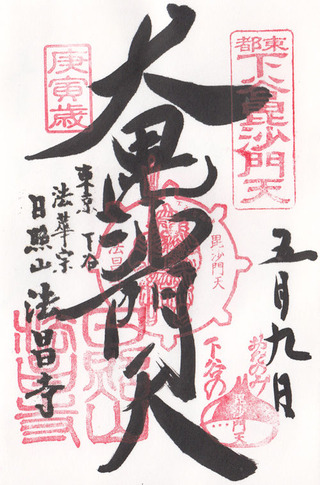 東都
下谷毘沙門天
五月九日
おたのみ
下谷の
毘沙門天
毘沙門天
法昌
大毘沙門天
庚寅歳
東京下谷
法華宗
日照山
法昌寺
日照山
法昌寺